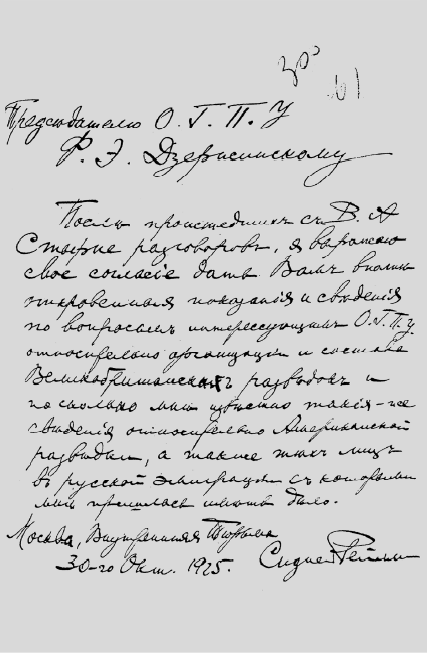 30
61
Председателю О. Г. П. У
Ф. Э. Дзержинскому
Послѣ происшедшихъ съ В. А
Стырне разговоровъ, я выражаю
свое согласіе дать Вамъ вполнѣ
откровенныя показанія и свѣдѣнія
по вопросамъ интересующимъ О.Г.П.У
относительно организаціи и состава
Великобританской развѣдки и
по сколько мнѣ извѣстно такія-же
свѣдѣнія относительно Американской
развѣдки, а также тѣхъ лицъ
въ русской эмиграціи съ которыми
мнѣ пришлось имѣть дѣло.
Москва, Внутренняя Тюрьма
30-го Окт. 1925. Сидней Рейлли